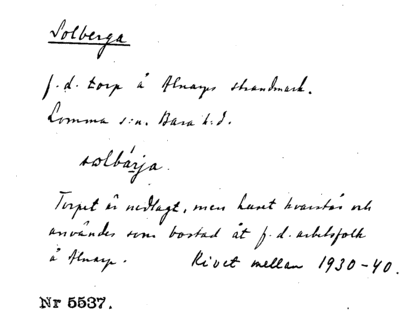 Solberga
f.d. torp å Alnarps strandmark.
Lomma s:n. Bara h:d.
sɷlbárja.
Torpet är nedlagt, men huset kvarstår och
användes som bostad åt f.d. arbetsfolk
å Alnarp. Rivet mellan 1930-40.
Nr 5537.